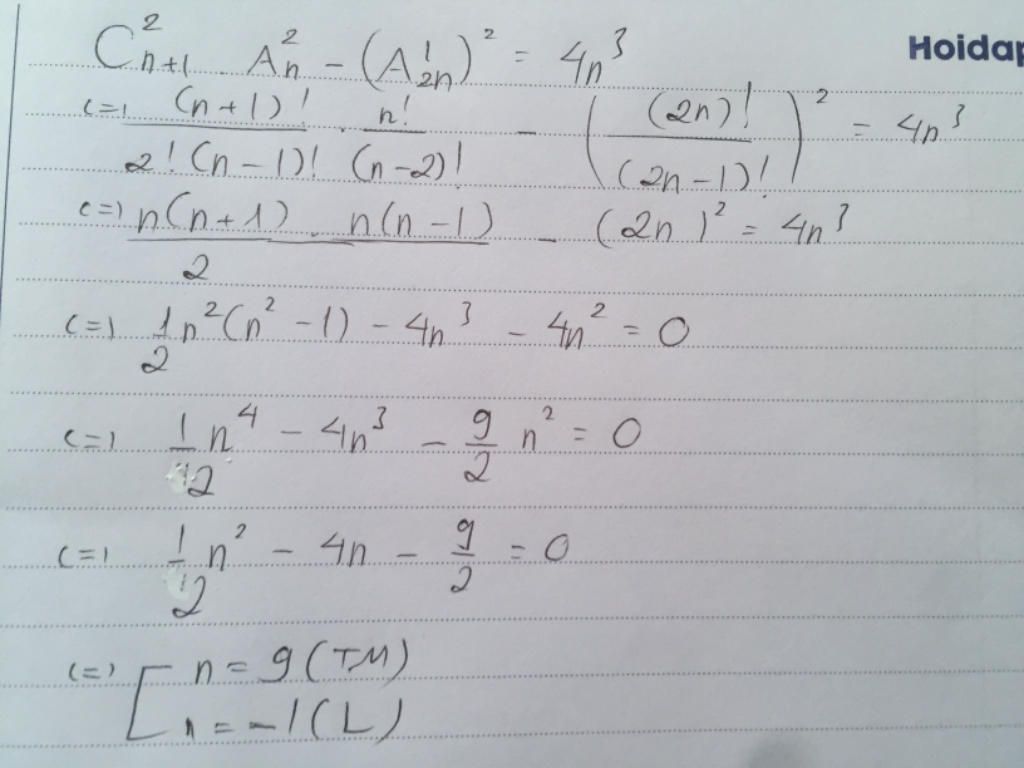 Hoidap
C²ₙ₊₁ . A²ₙ - (A¹₂ₙ)² = 4n³
<=> (n+1)!/(2!(n-1)!) . n!/(n-2)! - ((2n)!/(2n-1)!)² = 4n³
<=> (n(n+1) . n(n-1))/2 - (2n)² = 4n³
<=> 1/2 n²(n²-1) - 4n³ - 4n² = 0
<=> 1/2 n⁴ - 4n³ - 9/2 n² = 0
<=> 1/2 n² - 4n - 9/2 = 0
<=> [ n = 9 (TM)
n = -1 (L)